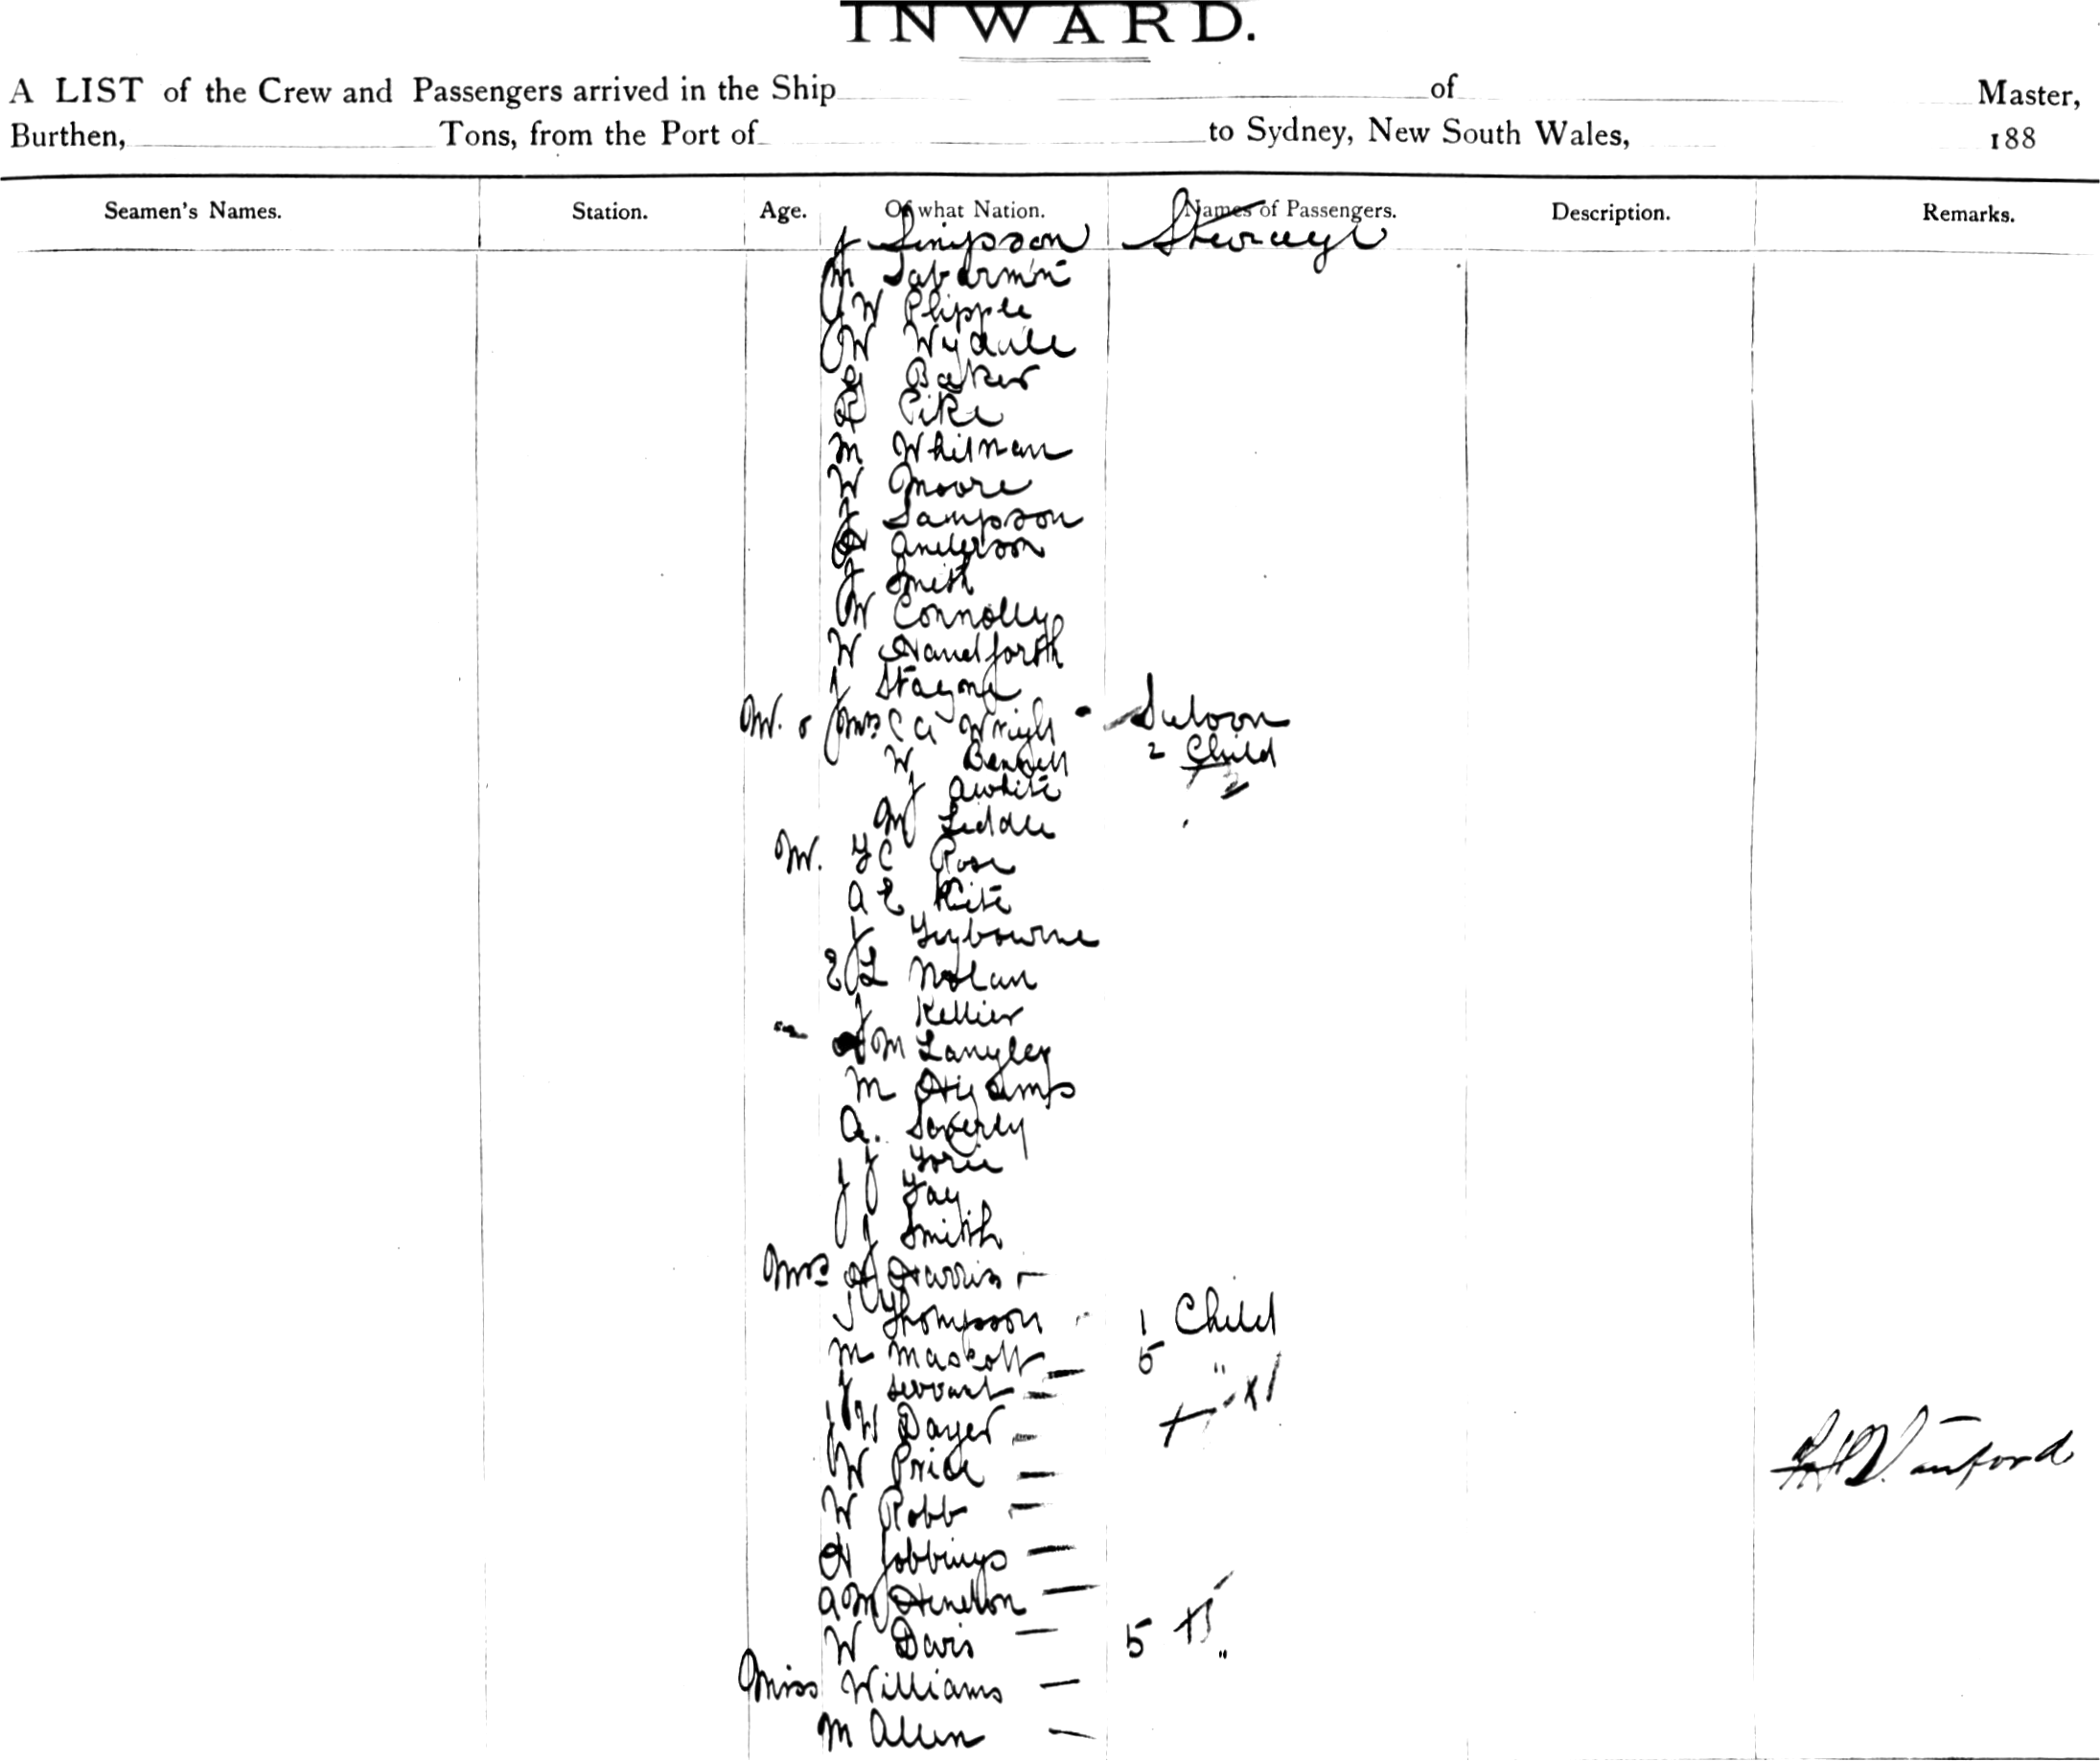 INWARD.
A LIST of the Crew and Passengers arrived in the Ship of Master,
Burthen, Tons, from the Port of to Sydney, New South Wales, 188
Seamen's Names. Station. Age. Of what Nation. Names of Passengers. Description. Remarks.
J Simpson Steerage
M
J W Phipple
W
G Baker
R Pike
M Whitman
W Moore
J Sampson
H Anderson
J Smith
W Connolly
W Handforth
J
Mr. & Mrs C A Wright - Saloon
W Bennett 2 Child
J White
M Liddle
Mr. G C Rose
A E Kite
J
E L Nolan
J Kellier
M Langley
M
A.
J J
J J Gay
J Smith
Mrs H Harris -
J Thompson 1 Child
M 5 "
J Servant -
J W -
W Price -
W Robb -
H Jobbings -
A M -
W Davis - 5 "
Miss Williams -
M Allen -